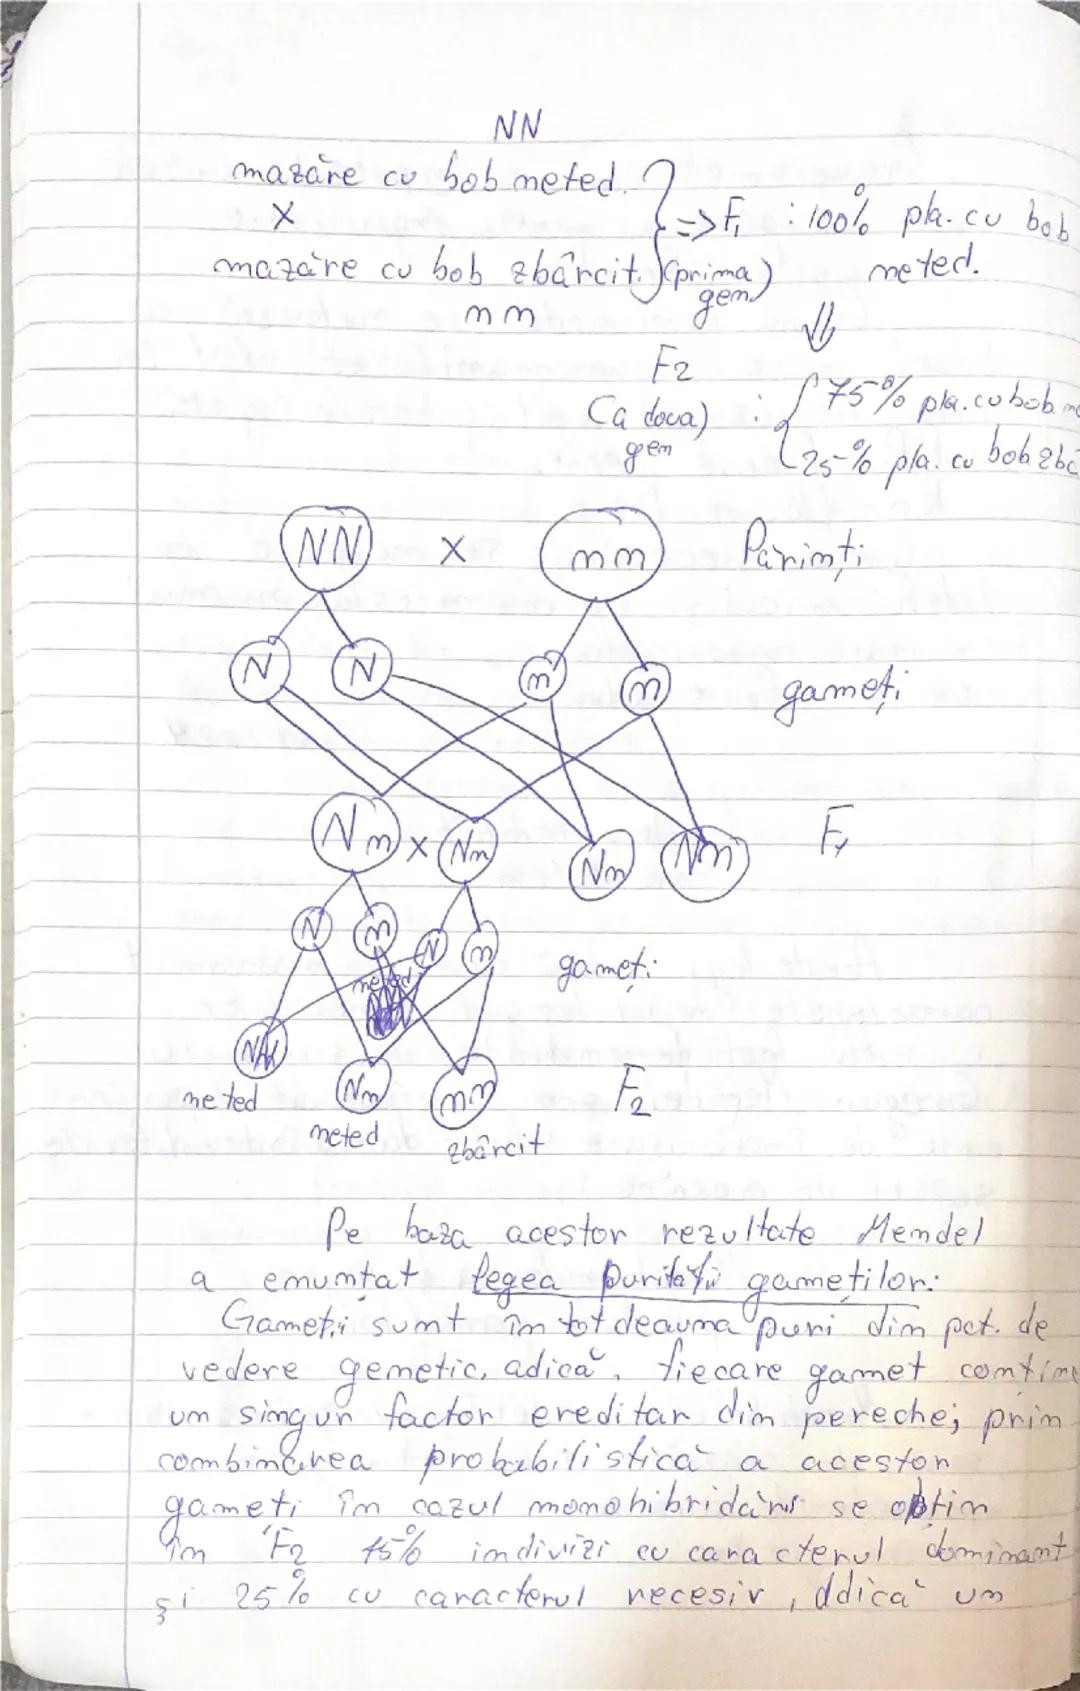 NN
mazăre cu bob neted.
X
=> F1 : 100% pla. cu bob
mazăre cu bob zbârcit. (prima) neted.
gen.
nn
F2
(a doua) : 75% pla. cu bob. ne
gen 25% pla. cu bob zbâ
NN X nn Părinți
N N n n gameți
Nn X Nn Nn Nn F1
N n N n gameți
neted
NN Nn nn F2
neted neted zbârcit
Pe baza acestor rezultate Mendel
a enunțat legea purității gameților:
Gameții sunt întotdeauna puri din pct. de
vedere genetic, adică, fiecare gamet conține
un singur factor ereditar din pereche; prin
combinarea probabilistică a acestor
gameți în cazul monohibridării se obtin
în F2 75% indivizi cu caracterul dominant
și 25% cu caracterul recesiv, adică un